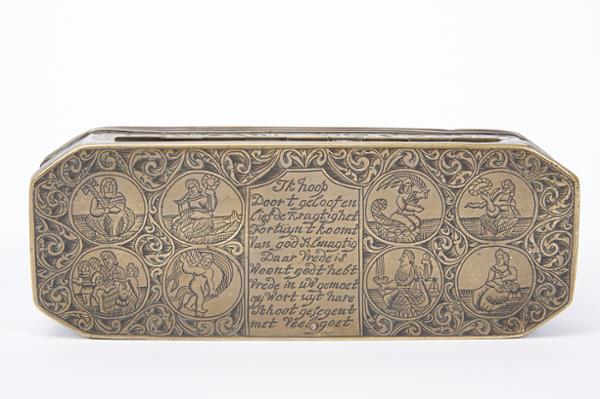 Ik hoop
Door t geloof en
Lief de kragtig het
Fortuyn t koomt
Van god Almagtig
Daar Vrede is
Woont godt hebt
Vrede in uW gemoet
gy Wort uyt hare
Schoot gesegent
met Veel goet